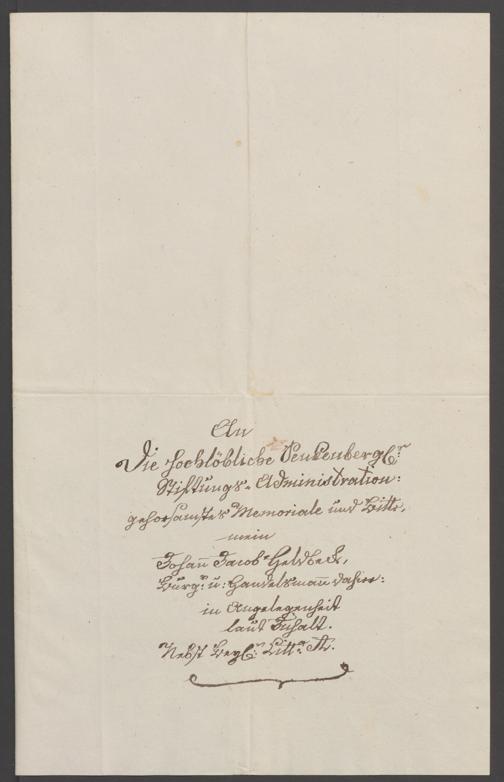 An
Die hochlöbliche Senkenbergl:
Stiftungs-Administration:
gehorsamstes Memoriale und Bitte,
mein
Johan̄ Jacob
Burgrs u: Handelsman̄ dahier:
in Angelegenheit
laut Inhalt.
Nebst Beyl: Litt: A.